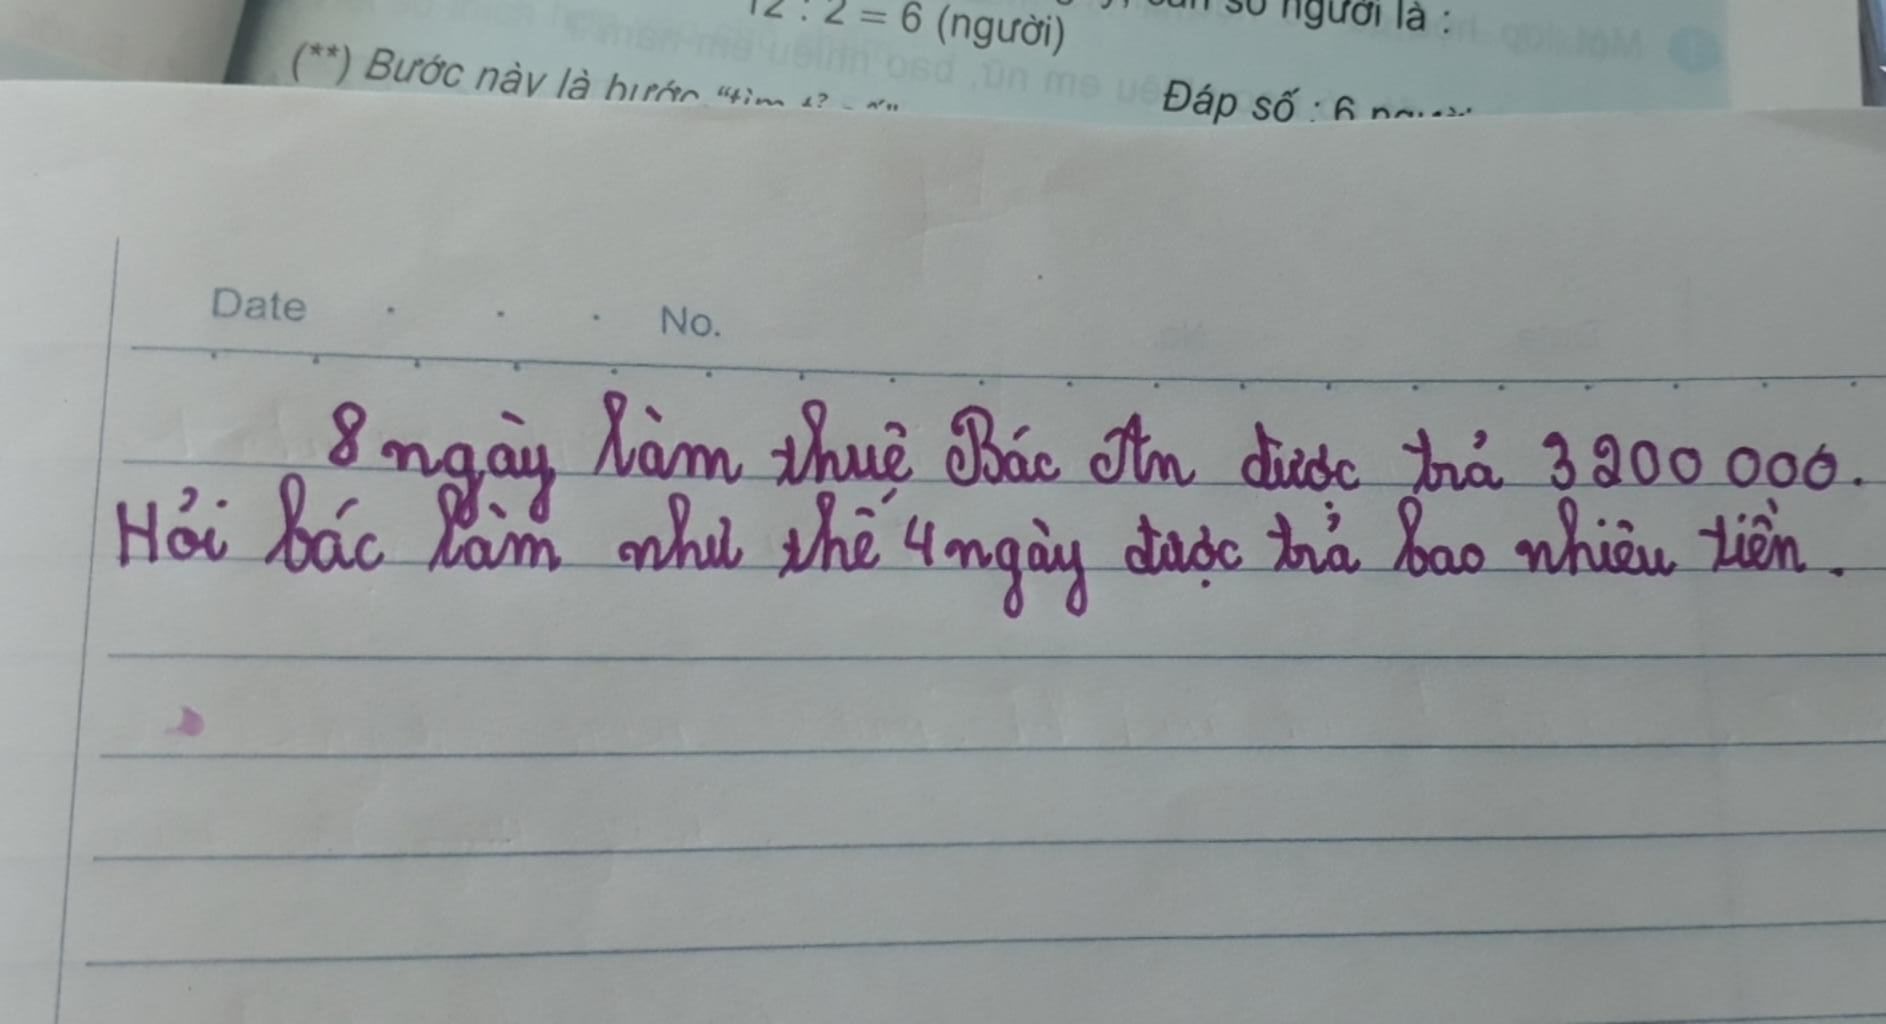 12 : 2 = 6 (người)
số người là :
(**) Bước này là bước "tìm tỉ số"
Đáp số : 6 người
Date . . . No.
8 ngày làm thuê Bác An được trả 3 200 000.
Hỏi bác làm như thế 4 ngày được trả bao nhiêu tiền.